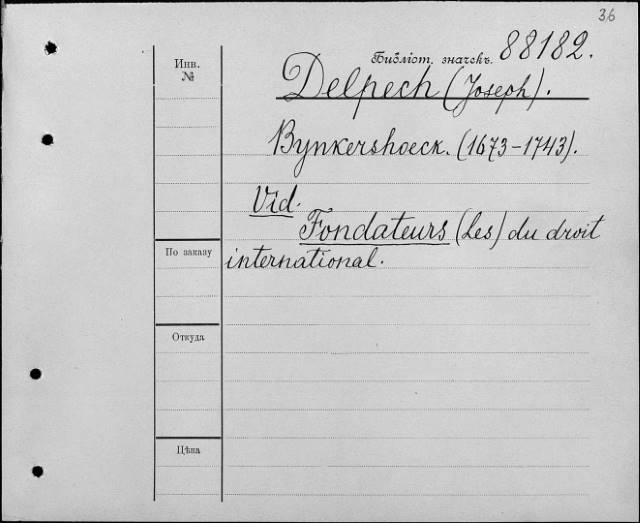 36
Инв.
№
Библіот. значекъ. 88182.
Delpech (Joseph).
Bynkershoeck. (1673-1743).
Vid.
Fondateurs (Les) du droit
international.
По заказу
Откуда
Цѣна